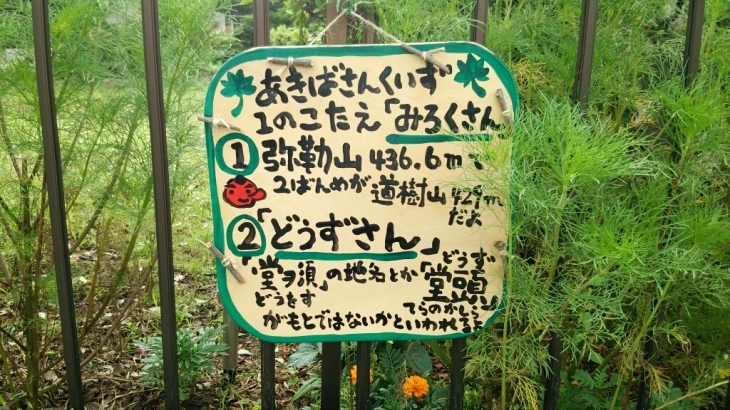 あきばさんくいず
1のこたえ「みろくさん
① 弥勒山 436.6mで
2ばんめが 道樹山 429m
だよ
②「どうずさん」
「堂ヲ須」の地名とか「堂頭」
どうをす
どうず
てらのかしら
がもとではないかといわれるよ